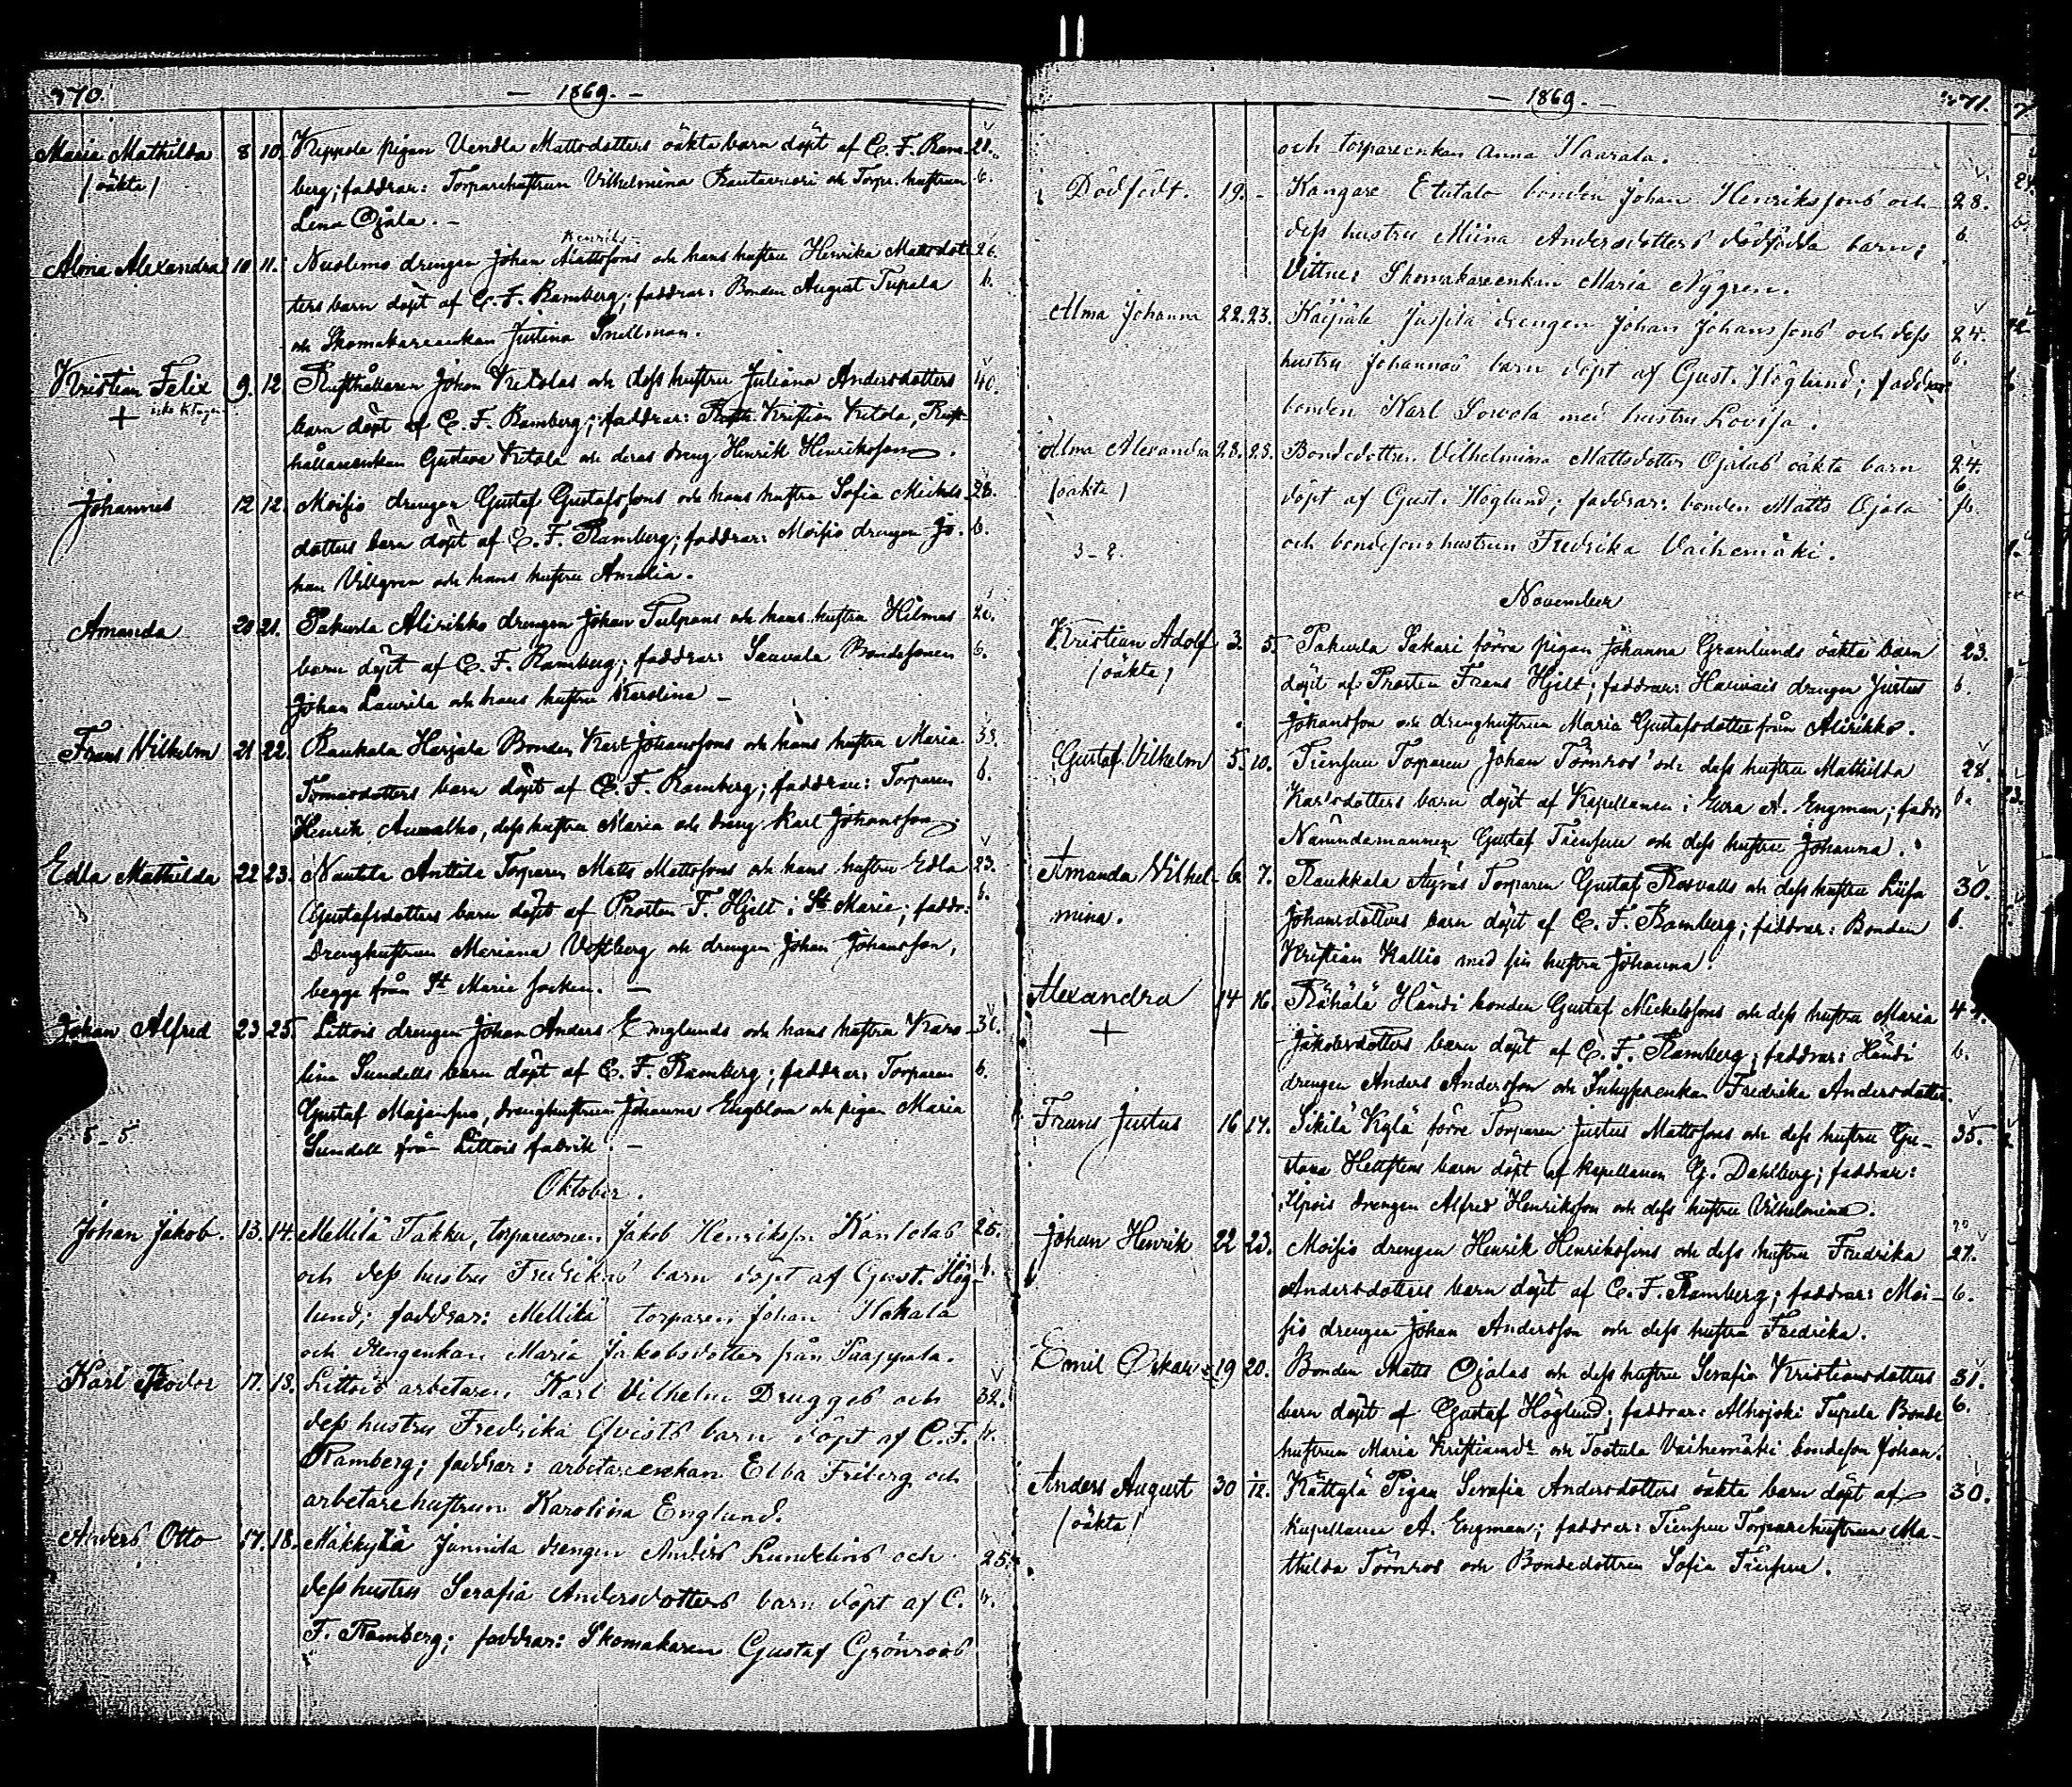 370.
— 1869. —
Maria Mathilda 8 10. pigan Vendla Mattsdotters oäkta barn döpt af C. F. Ram- 28.
/oäkta/ berg; faddrar: Torparehustrun Vilhelmina Rautavuori och Torp. hustrun b.
Lena Ojala. —
Henriks-
Alma Alexandra 10 11. Nuolemo drengen Johan Mattssons och hans hustru Henrika Mattsdot- 26.
ters barn döpt af C. F. Ramberg; faddrar: Bonden August Tupala b.
och Skomakareenkan Justina Snellman.
Kristian Felix 9. 12. Rusthållaren Johan Ketolas och dess hustru Juliana Andersdotters 40.
+ barn döpt af C. F. Ramberg; faddrar: Kristian Ketola, Rust-
hållareenkan Gustava Ketola och deras dreng Henrik Henriksson.
Johannes 12 12. Moisio drengen Gustaf Gustafssons och hans hustru Sofia Mickels- 28.
dotters barn döpt af C. F. Ramberg; faddrar: Moisio drengen Jo- b.
han Villgren och hans hustru Amalia.
Amanda 20 21. Pakurla Alirikko drengen Johan Tulpans och hans hustru Hilmas 20.
barn döpt af C. F. Ramberg; faddrar: Sauvala Bondesonen b.
Johan Laurila och hans hustru Karolina —
Frans Vilhelm 21 22. Raukala Harjala Bonden Karl Johanssons och hans hustru Maria 38.
Tomasdotters barn döpt af C. F. Ramberg; faddrar: Torparen b.
Henrik, dess hustru Maria och dreng Karl Johansson.
Edla Mathilda 22 23. Nautela Anttila Torparen Matts Mattssons och hans hustru Edla 23.
Gustafsdotters barn döpt af Prosten F. Hjelt i St Marie; faddr: b.
Drenghustrun Mariana Vestberg och drengen Johan Johansson,
begge från St Marie socken. —
Johan Alfred 23 25. Littois drengen Johan Anders Englunds och hans hustru Karo- 36.
lina Sundells barn döpt af C. F. Ramberg; faddrar: Torparen b.
Gustaf Majansuo, drenghustrun Johanna Engblom och pigan Maria
5–5 Sundell från Littois fabrik. —
Oktober.
Johan Jakob. 13. 14. Mellilä Takku, torparesonen Jakob Henriksson Kantolas 25.
och dess hustru Fredrikas barn döpt af Gust. Hög- b.
lund; faddrar: Mellilä torparen Johan Hakala
och drengenkan Maria Jakobsdotter från Paappala.
Karl Feodor 17. 18. Littois arbetaren Karl Vilhelm Drugges och 32.
dess hustru Fredrika Qvists barn döpt af C. F.
Ramberg; faddrar: arbetareenkan Elba Friberg och
arbetarehustrun Karolina Englund.
Anders Otto 17. 18. Mäkkylä Junnila drengen Anders Lundelins och 25.
dess hustru Serafia Andersdotters barn döpt af C.
F. Ramberg; faddrar: Skomakaren Gustaf Grönroos
— 1869. — 371.
och torpareenkan Anna Haarala.
Dödfödt. 19. – Kangare Etutalo bonden Johan Henrikssons och 28.
dess hustru Miina Andersdotters dödfödda barn; b.
Vittne: Skomakareenkan Maria Nygren.
Alma Johanna 22. 23. Juspila drengen Johan Johanssons och dess 24.
hustru Johannas barn döpt af Gust. Höglund; faddrar: b.
bonden Karl Sorvola med hustru Lovisa.
Alma Alexandra 23. 23. Bondedottren Vilhelmina Mattsdotter Ojalas oäkta barn 24.
/oäkta/ döpt af Gust. Höglund; faddrar: bonden Matts Ojala b.
3–2. och bondesonshustrun Fredrika Vaihemäki.
November
Kristian Adolf 3. 5. Pakurla Sakari förra pigan Johanna Granlunds oäkta barn 23.
/oäkta/ döpt af Prosten Frans Hjelt; faddrar: drengen Justus b.
Johansson och drenghustrun Maria Gustafsdotter från Alirikko.
Gustaf Vilhelm 5. 10. Tiensuu Torparen Johan Törnros' och dess hustru Mathilda 28.
Karlsdotters barn döpt af Kapellanen i Eura A. Engman; faddr: b.
Nämndemannen Gustaf Tiensuu och dess hustru Johanna.
Amanda Vilhel- 6 7. Raukkala Äyräs Torparen Gustaf Rosvalls och dess hustru Liisa 30.
mina. Johansdotters barn döpt af C. F. Ramberg; faddrar: Bonden b.
Kristian Kallio med sin hustru Johanna.
Alexandra 14 16. Rähälä Händi bonden Gustaf Mickelssons och dess hustru Maria
+ Jakobsdotters barn döpt af C. F. Ramberg; faddrar: Händi b.
drengen Anders Andersson och Inhyseenkan Fredrika Andersdotter.
Frans Justus 16 17. Sikilä Kylä förre Torparen Justus Mattssons och dess hustru Gu- 35.
stava barn döpt af kapellanen Gj. Dahlberg; faddrar:
drengen Alfred Henriksson och dess hustru Vilhelmina.
Johan Henrik 22 23. Moisio drengen Henrik Henrikssons och dess hustru Fredrika 27.
Andersdotters barn döpt af C. F. Ramberg; faddrar: Moi- b.
sio drengen Johan Andersson och dess hustru Fredrika.
Emil Oskar 19 20. Bonden Matts Ojalas och dess hustru Serafia Kristiansdotters 31.
barn döpt af Gustaf Höglund; faddrar: Alhojoki Tupala Bonde b.
hustrun Maria Kristiansdr och Tootula Vaihemäki bondeson Johan.
Anders August 30 1/12. Kättylä Pigan Serafia Andersdotters oäkta barn döpt af 30.
/oäkta/ Kapellanen A. Engman; faddrar: Tiensuu Torparehustrun Ma-
thilda Törnros och Bondedottren Sofia Tiensuu.